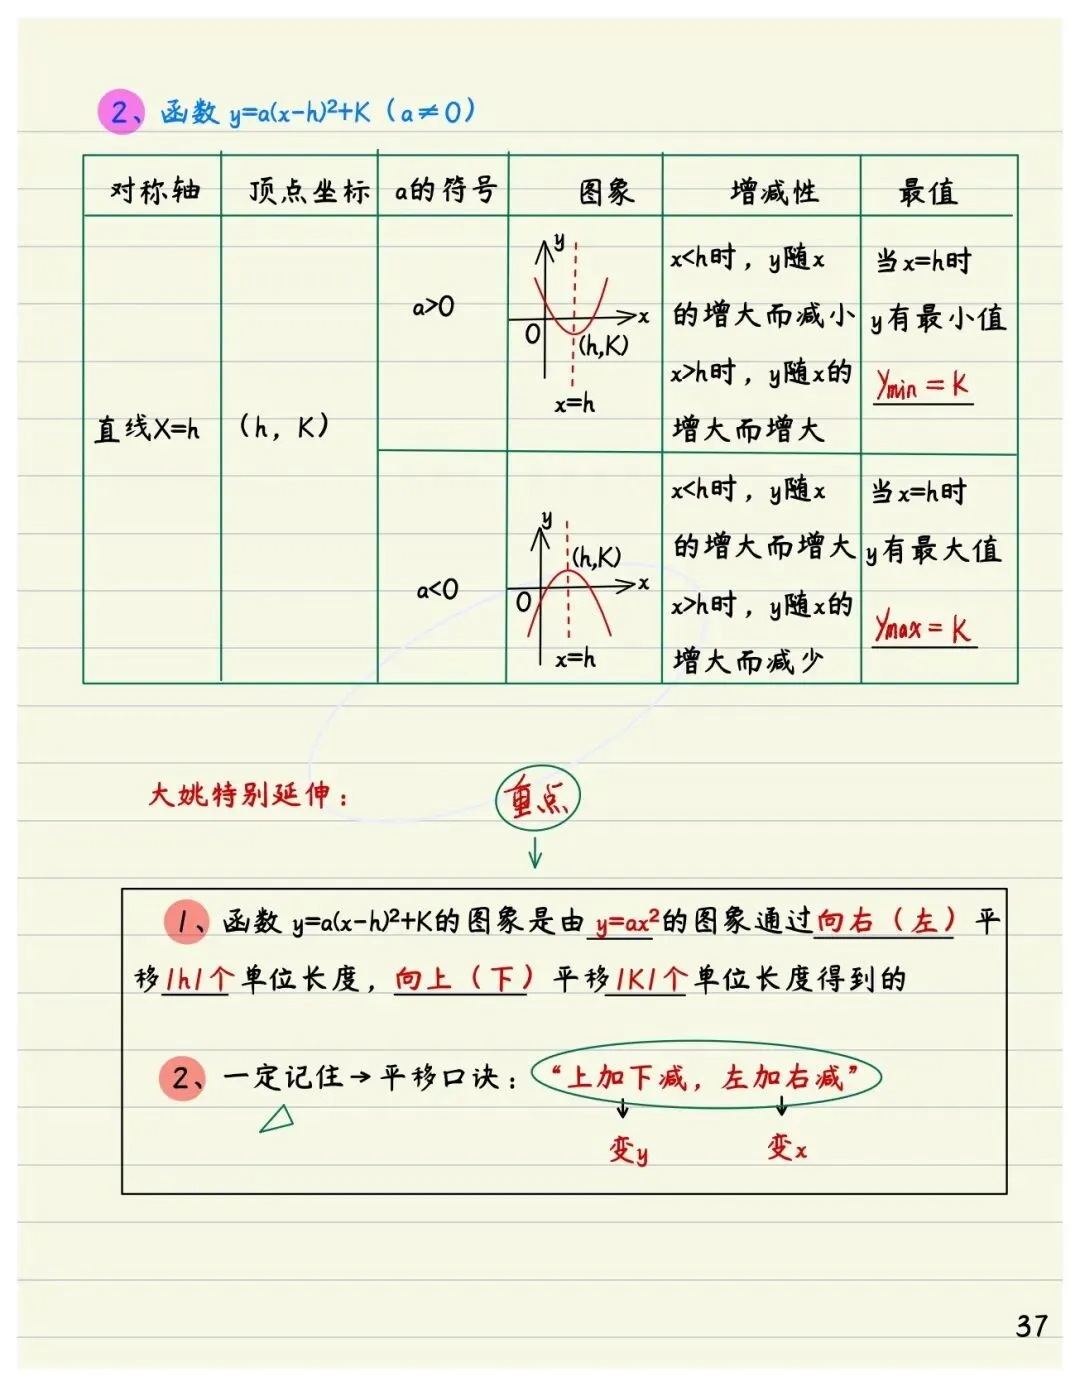 2、函数 y=a(x-h)²+K（a≠0）
对称轴 顶点坐标 a的符号 图象 增减性 最值
直线X=h
(h, K)
a>0
y
x
O
(h,K)
x=h
x<h时，y随x
的增大而减小
x>h时，y随x的
增大而增大
当x=h时
y有最小值
ymin=K
a<0
y
(h,K)
x
O
x=h
x<h时，y随x
的增大而增大
x>h时，y随x的
增大而减少
当x=h时
y有最大值
ymax=K
大姚特别延伸：
重点
1、函数 y=a(x-h)²+K的图象是由 y=ax²的图象通过向右（左）平
移|h|个单位长度，向上（下）平移|K|个单位长度得到的
2、一定记住→平移口诀：“上加下减，左加右减”
变y 变x
37